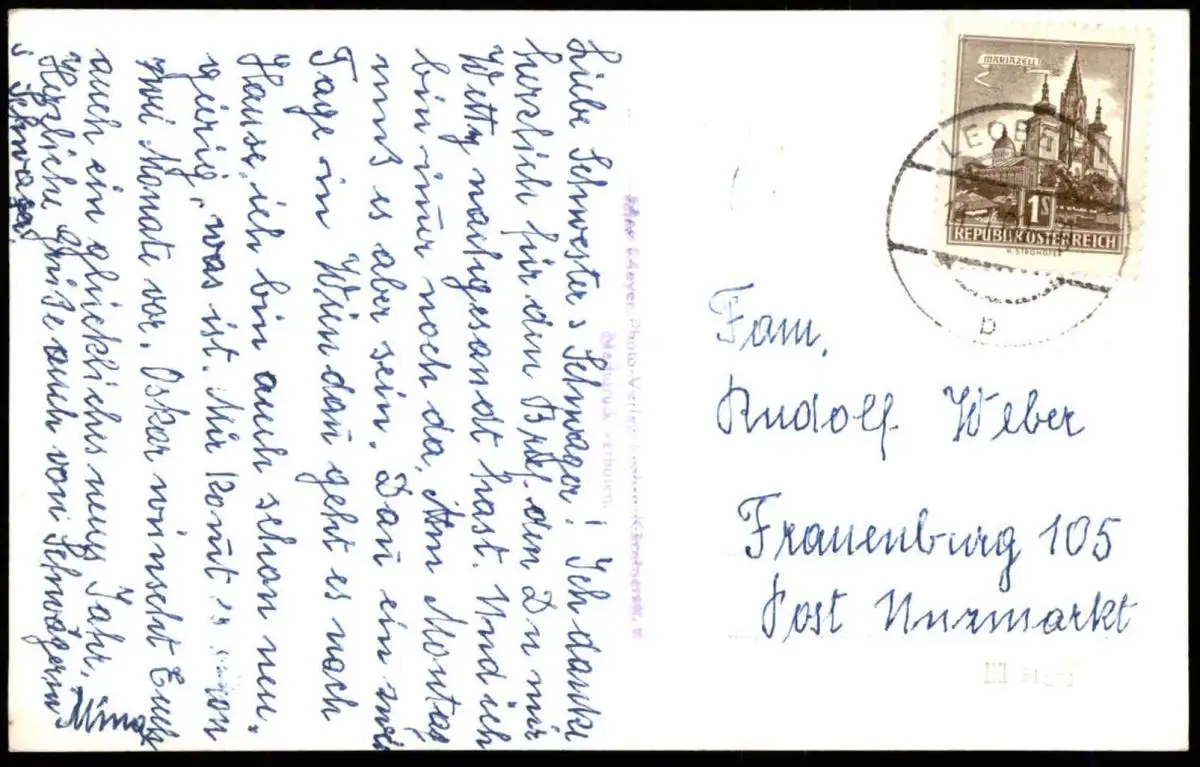 Liebe Schwester u Schwager! Ich danke
herzlich für den Brief. den Du mir
Wetty nachgesandt hast. Und ich
bin im̅er noch da. Am Montag
muss es aber sein. Dan̅ ein zwei
Tage in Wien dan̅ geht es nach
Hause, ich bin auch schon neu-
gierig, was ist. Mir kom̅t es schon
zwei Monate vor. Oskar winscht Euch
auch ein glückliches neues Jahr.
Herzliche Grüße auch von Schwägerin
u Schwager
Mina
MARIAZELL
1S
REPUBLIK ÖSTERREICH
LEOBEN
b
Fam.
Rudolf Weber
Frauenburg 105
Post Unzmarkt